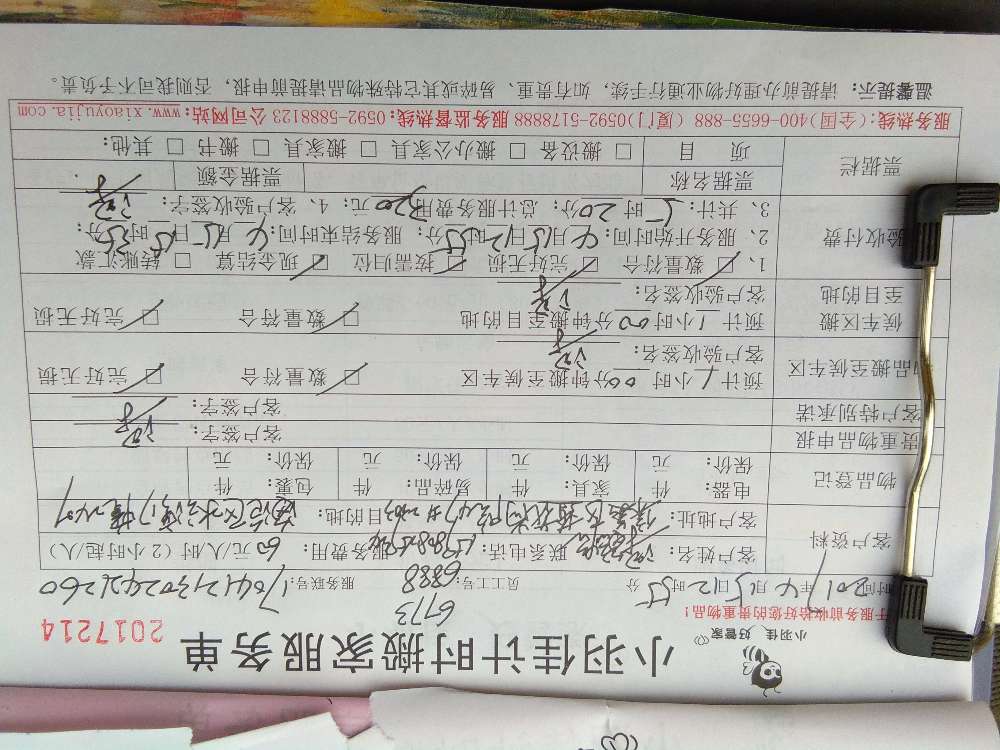 小羽佳 好管家
小羽佳计时搬家服务单
2017214
服务前收拾好您的贵重物品!
6773
时间:2017年4月15日12时55分 员工工号:6888 服务联号:
客户资料 客户姓名: 联系电话: 服务费用:60元/人/时(2小时起/人)
客户地址: 搬至目的地:
物品登记 电器: 件 家具: 件 易碎: 件 包裹: 件
保价: 元 保价: 元 保价: 元 保价: 元
贵重物品申报 客户签字:
客户特别承诺 客户签字:
物品搬至候车区 预计1小时00分钟搬至候车区 数量符合 完好无损
客户验收签名:
候车区搬至目的地 预计1小时00分钟搬至目的地 数量符合 完好无损
客户验收签名:
验收付费 1、数量符合 完好无损 按需归位 现金结算 转账汇款
2、服务开始时间:4月15日12时55分; 服务结束时间:4月15日 时 分;
3、共计: 时20分; 总计服务费用320元; 4、客户验收签字:
票据栏 票据名称 票据金额
项 目 搬设备 搬办公家具 搬家具 搬书 其他:
服务热线:(全国)400-6655-888 (厦门)0592-5178888 服务监督热线:0592-5888123 公司网站:www.xiaoyujia.com
温馨提示:请提前办理好物业通行手续,如有贵重、易碎或其它特殊物品请提前申报,否则我司不予负责。